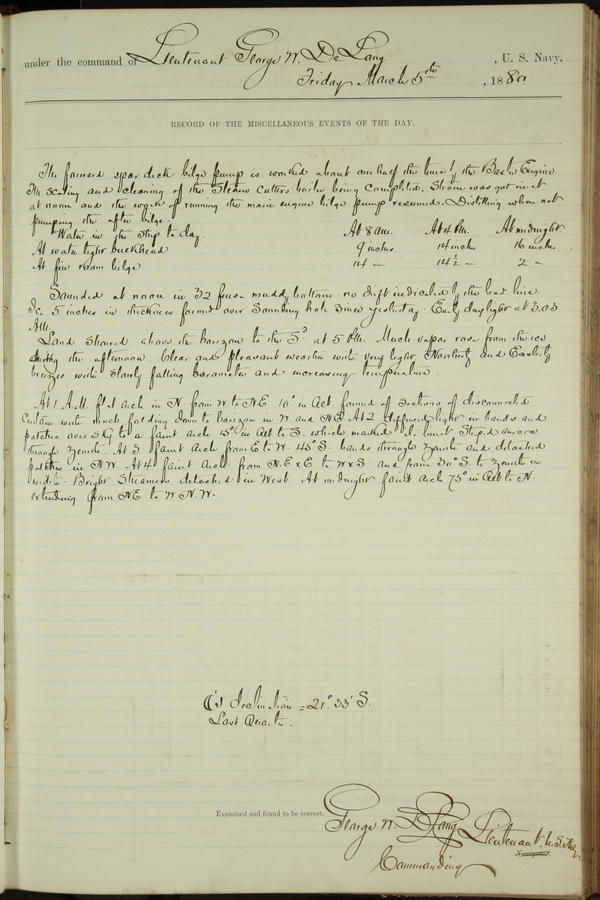 under the command of Lieutenant George W. De Long, U. S. Navy.
Friday March 5th, 1880
RECORD OF THE MISCELLANEOUS EVENTS OF THE DAY.
The forward spar deck bilge pump is worked about one half the time by the Baxter Engine
The scaling and cleaning of the Steam Cutters boiler being completed. Steam was got in it
at noon and the work of running the main engine bilge pump resumed. Distilling when not
pumping the after bilge.
Water in the ship to day. At 8 am. At 4 Pm. At midnight
At water tight buckhead 9 inches 14 inches 16 inches
At fire room bilge 14 " 14½ " 2 "
Sounded at noon in 32 fms muddy bottom no drift indicated by the lead line
Ice 5 inches in thickness formed over Sounding hole since yesterday. Early daylight at 3.03
AM.
Land showed above the horizon to the Sd at 5 PM. Much vapor rose from the ice
during the afternoon. Clear and pleasant weather with very light Northerly and Easterly
breezes with slowly falling barometer and increasing temperature.
At 1 A.M. flat arch in N. from W. to N.E. 10° in alt formed of sections of disconnected
Curtain with much fading down to horizon in N. and N.E. At 2 diffused light in bands and
patches over sky to a faint arch 15° in alt to S. which marked its limit. Striped aurora
through zenith. At 3 faint arch from E. to W. 45° S. bands through zenith and detached
patches in N.W. At 4 faint arch from N.E. x E. to W x S. and from 30° S. to zenith in
width. Bright Streamers detached in West. At midnight faint arch 75° in Alt to N.
extending from NE to W.N.W.
☾'s declination = 21° 33' S.
Last Quarter.
Examined and found to be correct.
George W. De Long Lieutenant. U.S. Navy
Navigator.
Commanding